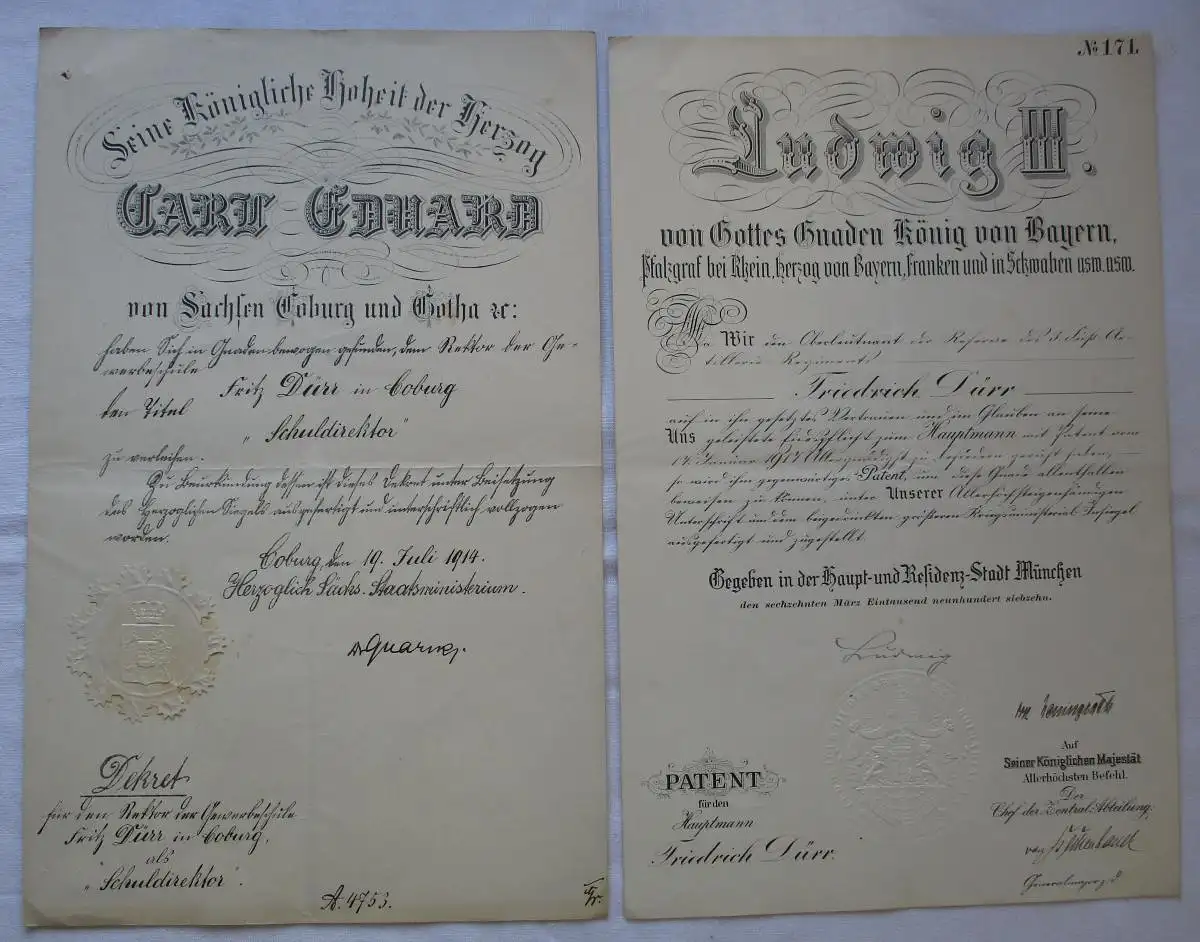 Seine Königliche Hoheit der Herzog
CARL EDUARD
von Sachsen Coburg und Gotha ec:
haben Sich in Gnaden bewogen gefunden, dem Rektor der Ge-
werbeschule
Fritz Dürr in Coburg
den Titel
„Schuldirektor“
zu verleihen.
Zu Beurkundung dessen ist dieses Dekret unter Beisetzung
des Herzoglichen Siegels ausgefertigt und unterschriftlich vollzogen
worden.
Coburg, den 19. Juli 1914.
Herzoglich Sächs. Staatsministerium.
Dekret
für den Rektor der Gewerbeschule
Fritz Dürr in Coburg,
als
„Schuldirektor“.
A. 4753.
No 171.
Ludwig III.
von Gottes Gnaden König von Bayern,
Pfalzgraf bei Rhein, Herzog von Bayern, Franken und in Schwaben usw. usw.
Wir den Oberleutnant der Reserve des 3. Fuß-Ar-
tillerie Regiments
Friedrich Dürr
auf in ihn gesetztes Vertrauen und im Glauben an seine
Uns geleistete Dienstpflicht zum Hauptmann mit Patent vom
17. Januar 1917 Allergnädigst zu befördern geruht haben,
so wird ihm gegenwärtiges Patent, um diese Gnade allenthalben
beweisen zu können, unter Unserer Allerhöchsteigenhändigen
Unterschrift und dem beigedruckten größeren Kriegsministerial-Insiegel
ausgefertigt und zugestellt.
Gegeben in der Haupt-und Residenz-Stadt München
den sechzehnten März Eintausend neunhundert siebzehn.
Ludwig
Auf
Seiner Königlichen Majestät
Allerhöchsten Befehl.
Der
Chef der Zentral-Abteilung:
von
Generalmajor z. D.
PATENT
für den
Hauptmann
Friedrich Dürr.